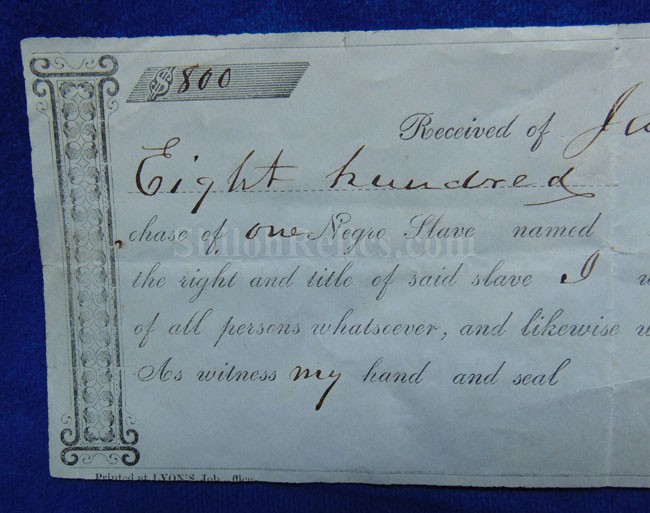 $ 800
Received of Ja
Eight hundred
chase of one Negro Slave named
ShilohRelics.com
the right and title of said slave I
of all persons whatsoever, and likewise
As witness my hand and seal
Printed at LYON'S Job Office